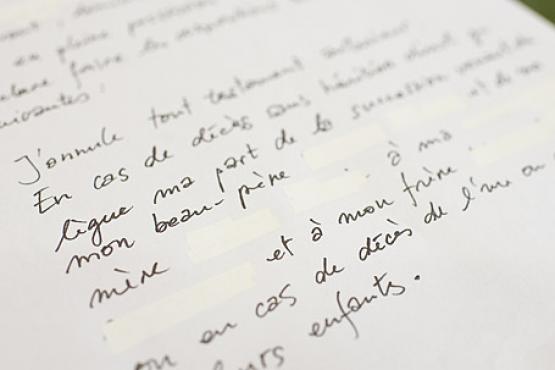 en pleine possession
faire les dispositions
suivantes :
J'annule tout testament antérieur
En cas de décès sans héritier
lègue ma part de la succession et de
mon beau-père à ma
mère et à mon frère
ou en cas de décès de l'un ou
leurs enfants.